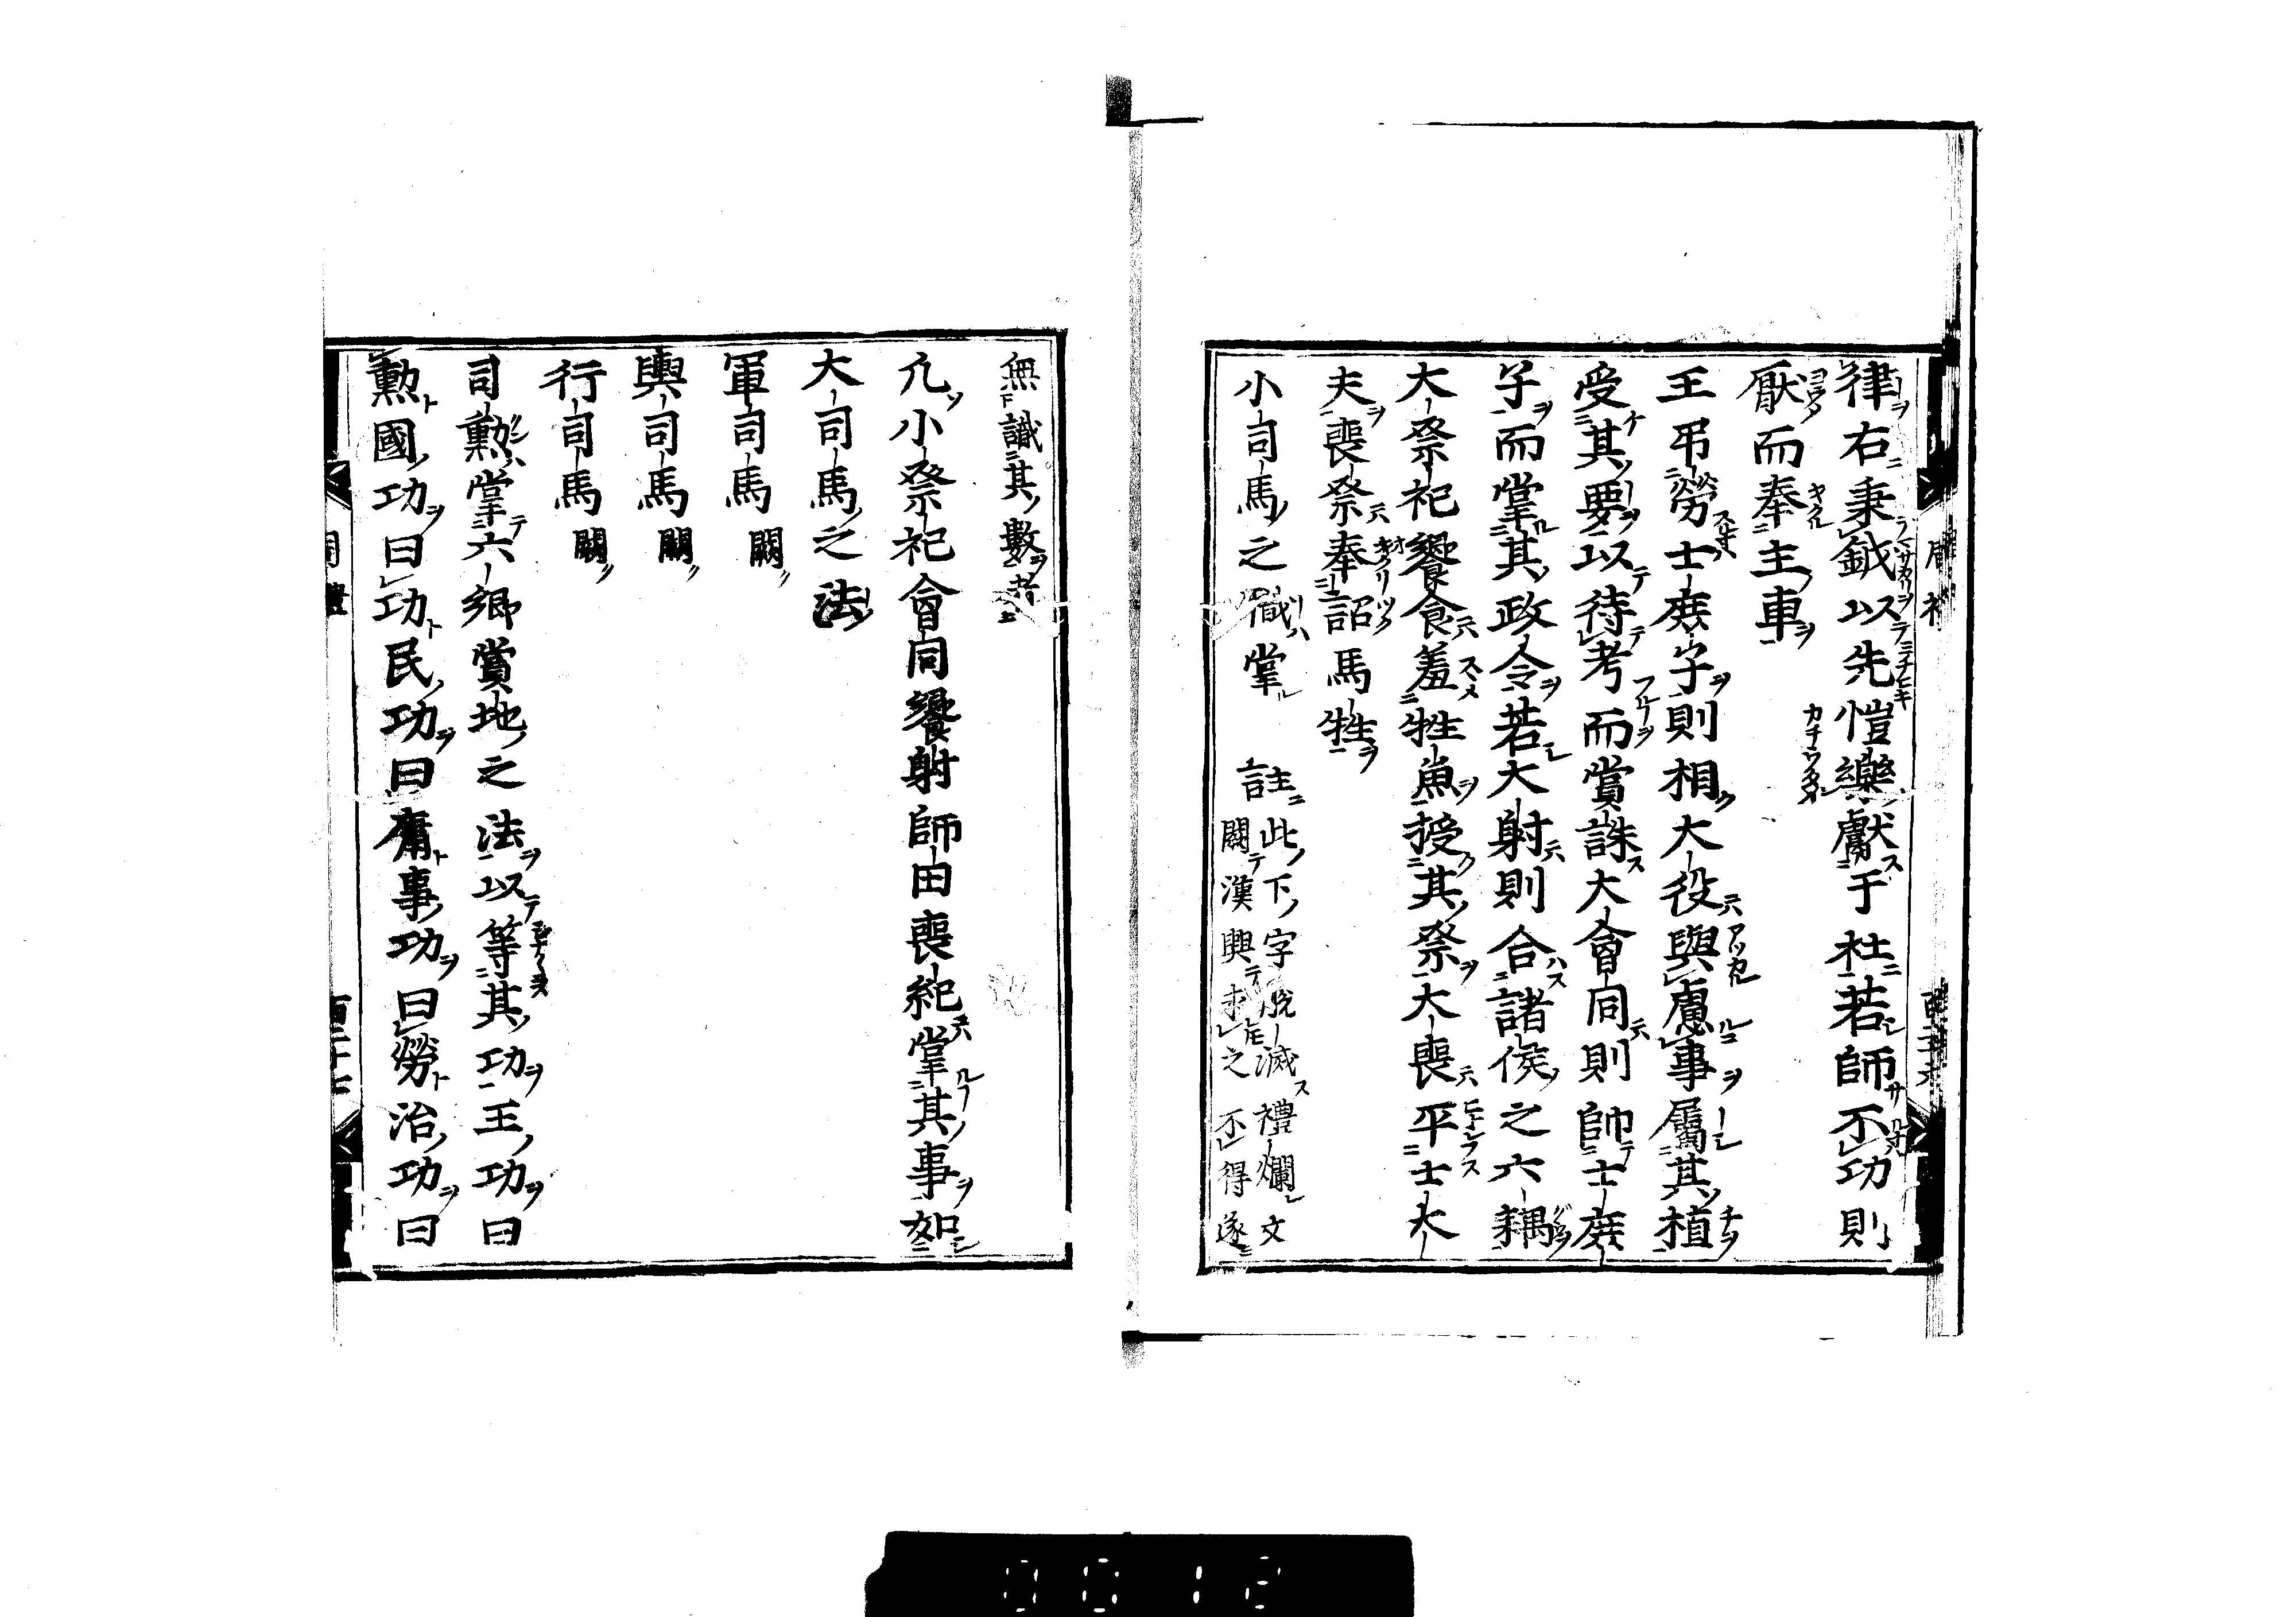 律右秉鉞以先愷樂獻于社若師不功則
厭而奉主車
王弔勞士庶子則相大役與慮事屬其植
受其要以待考而賞誅大會同則帥士庶
子而掌其政令若大射則合諸侯之六耦
大祭祀饗食羞牲魚授其祭大喪平士大
夫喪祭奉詔馬牲
小司馬之職掌 註
此下字脫滅禮爛文
闕漢興求之不得遂
無識其數者
凡小祭祀會同饗射師田喪紀掌其事如
大司馬之法
軍司馬 闕
輿司馬 闕
行司馬 闕
司勲掌六鄉賞地之法以等其功王功曰
勲國功曰功民功曰庸事功曰勞治功曰
0012